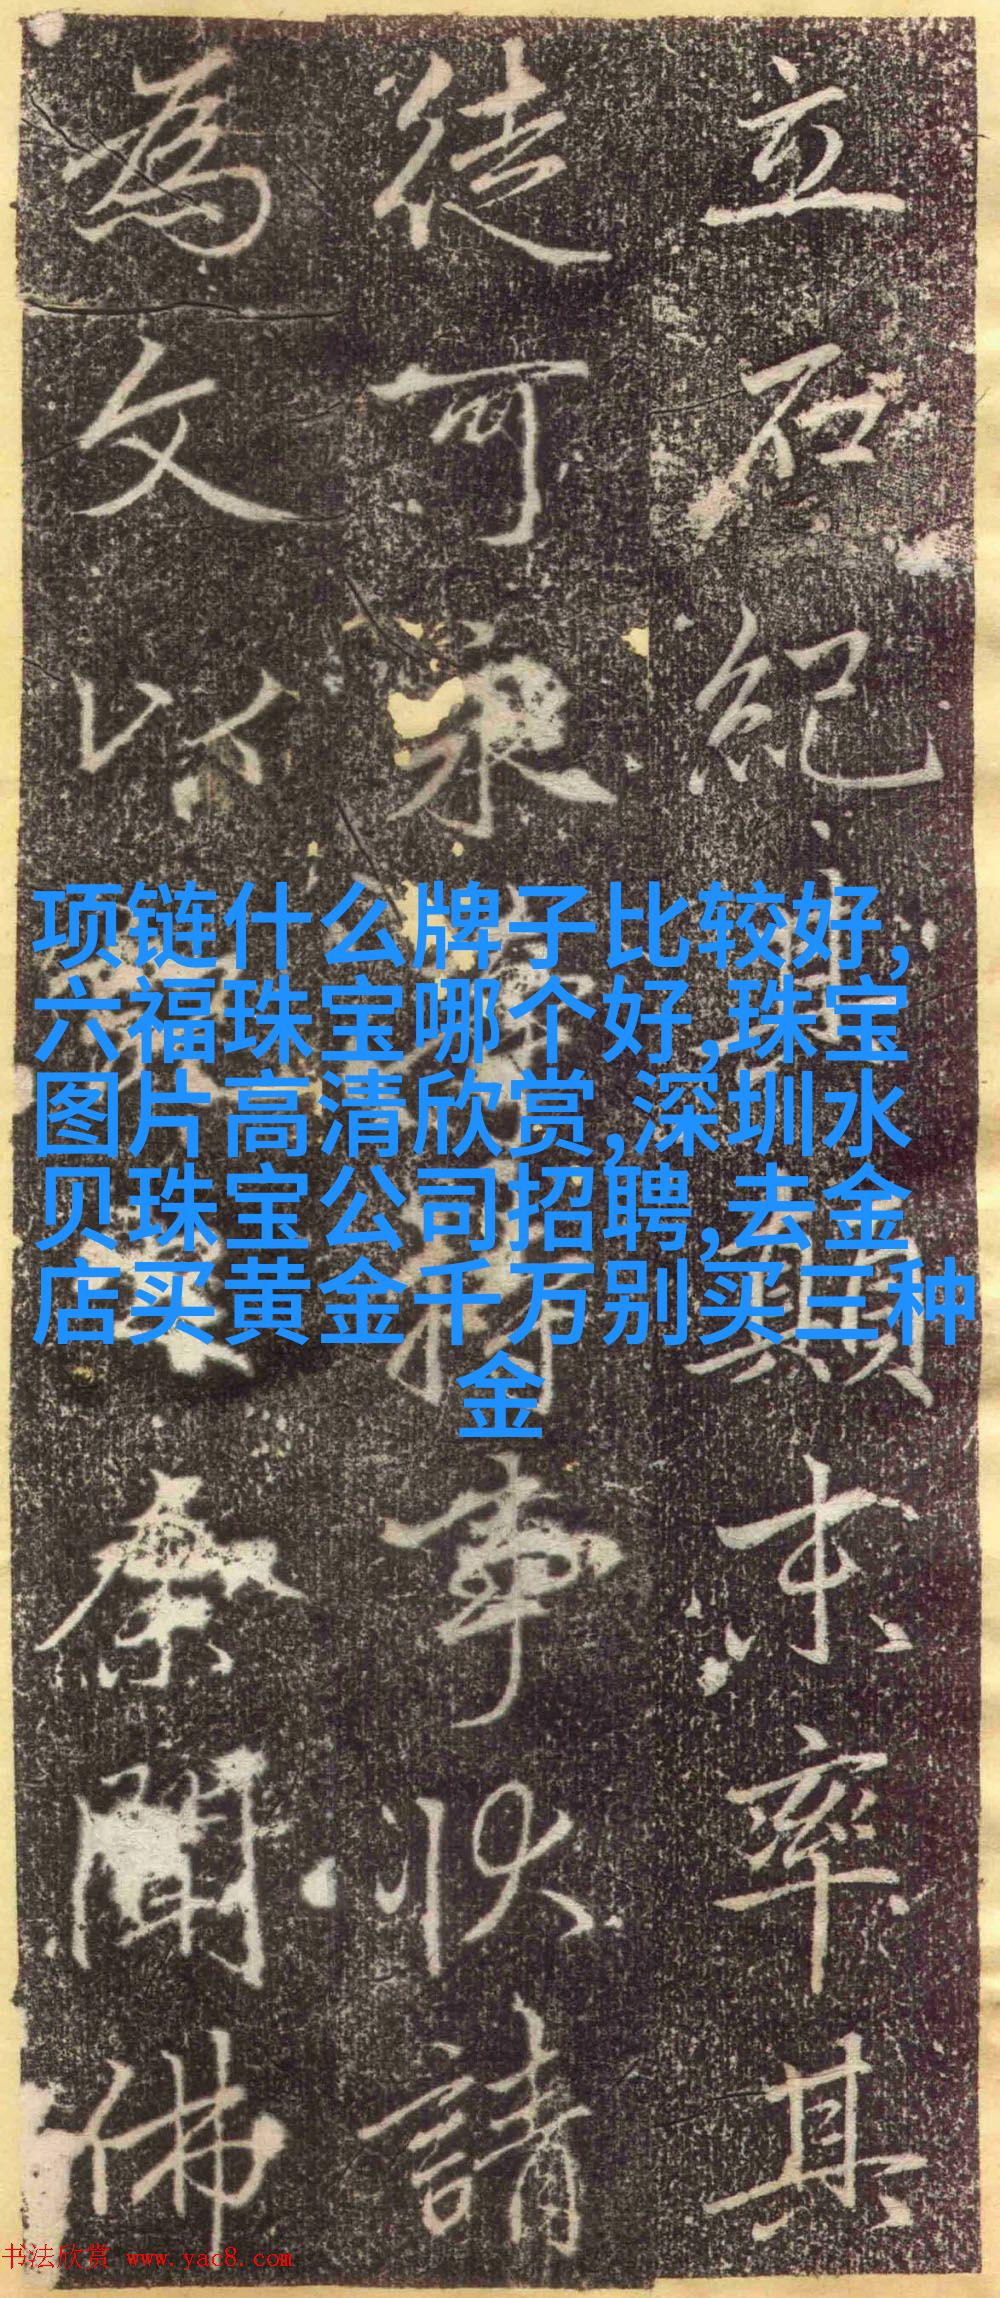 立石紀其顛末率其
徒可持事狀請
為文以聞佛
项链什么牌子比较好,
六福珠宝哪个好,珠宝
图片高清欣赏,深圳水
贝珠宝公司招聘,去金
店买黄金千万别买三种
金
书法欣赏 www.yac8.com